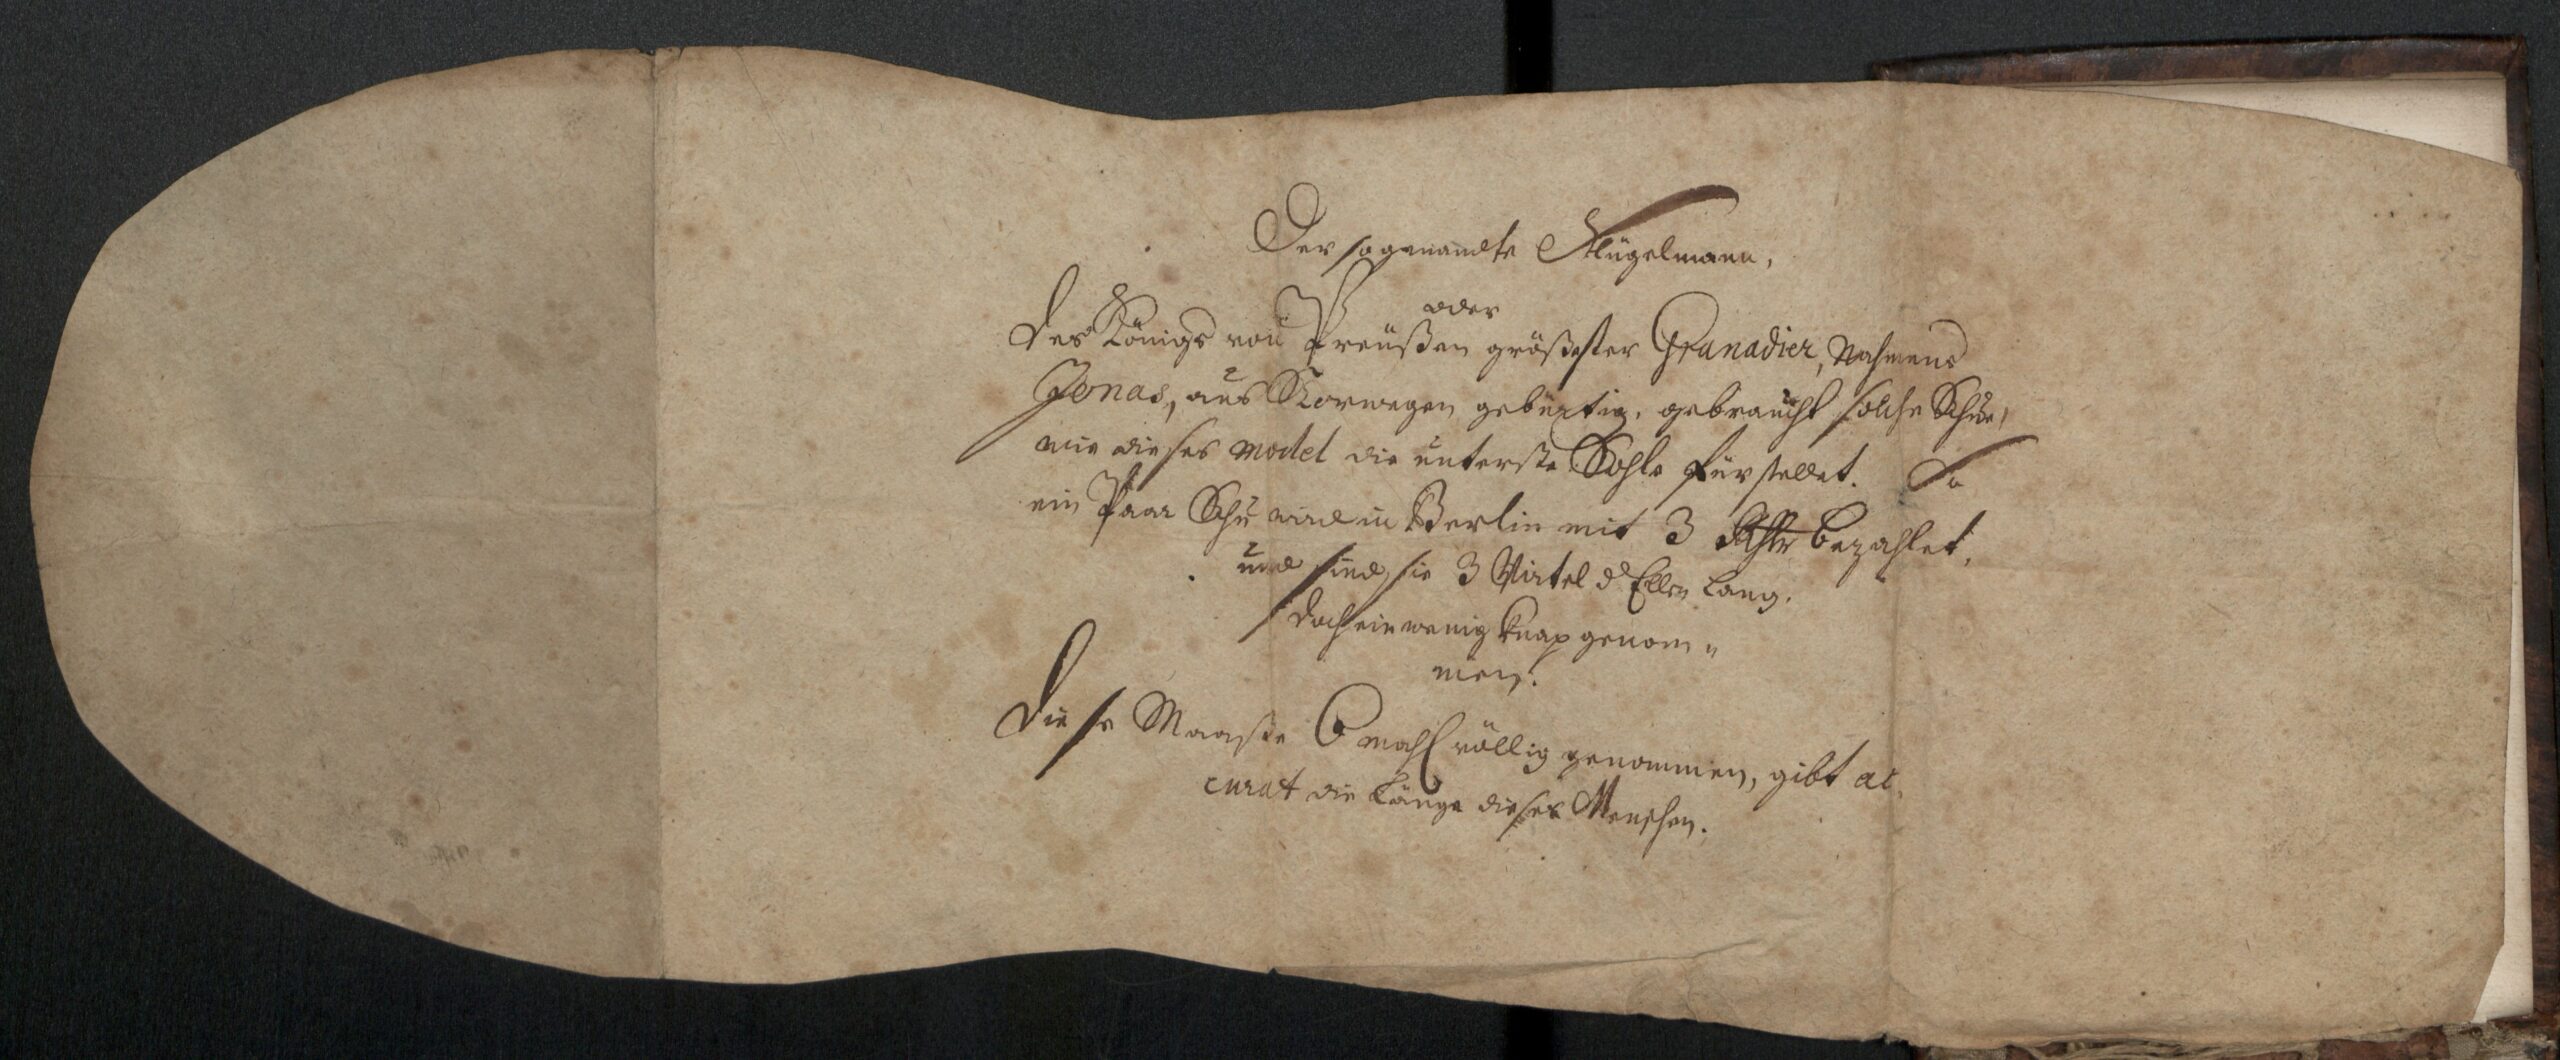 Der sogenandte Flügelmann,
oder
des Königs von Preüßen größester Granadier, Nahmens
Jonas, aus Norwegen gebürtig, gebraucht solche Schue,
wie dieses model die unterste Sohle fürstellet. So
ein Paar Schu wird in Berlin mit 3 Rthlr bezahlet,
und sind sie 3 Virtel d Ellen lang.
doch ein wenig knap genom„
men.
Diese Maaße 6 mahl völlig genommen, gibt ac„
curat die Länge dieses Menschen.